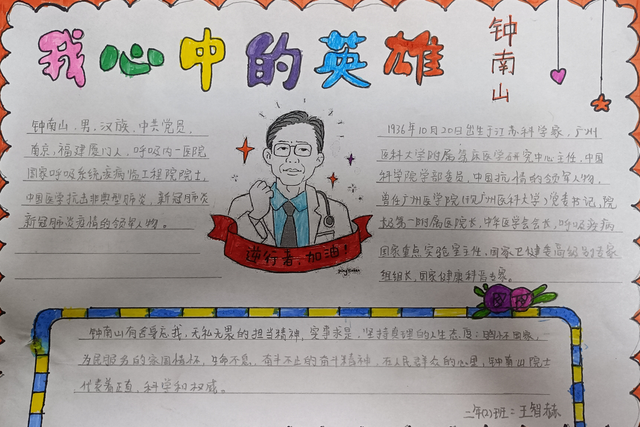 我心中的英雄
钟南山
钟南山,男,汉族,中共党员,
南京,福建厦门人,呼吸内一医院
国家呼吸系统疾病临工程院院士,
中国医学抗击非典型肺炎,新冠肺炎
新冠肺炎疫情的领军人物。
逆行者,加油!
1936年10月20日出生于江苏科学家,广州
医科大学附属医医学研究中心主任,中国
科学院学部委员,中国抗疫情的领军人物,
曾任广州医学院(现广州医科大学)党委书记,院
长第一附属医院长,中华医学会会长,呼吸疾病
国家重点实验室主任,国家卫健委高级别专家
组组长,国家健康科普专家。
钟南山有舍身忘我,无私无畏的担当精神,实事求是,坚持真理的人生态度;胸怀国家,
为民服务的家国情怀,生命不息,奋斗不止的奋斗精神,在人民群众的心里,钟南山院士
代表着正直,科学和权威。
二年(2)班:王智赫